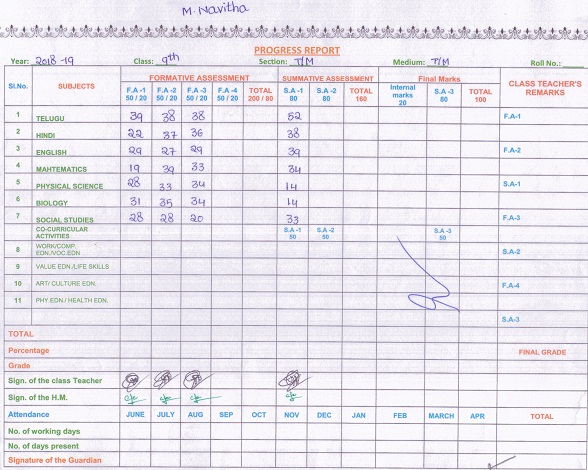 M. Navitha
PROGRESS REPORT
Year: 2018-19 Class: 9th Section: T/M Medium: T/M Roll No.:
Sl.No. SUBJECTS FORMATIVE ASSESSMENT SUMMATIVE ASSESSMENT Final Marks CLASS TEACHER'S REMARKS
F.A -1 50 / 20 F.A -2 50 / 20 F.A -3 50 / 20 F.A -4 50 / 20 TOTAL 200 / 80 S.A -1 80 S.A -2 80 TOTAL 160 Internal marks 20 S.A -3 80 TOTAL 100
1 TELUGU 39 38 38 52 F.A-1
2 HINDI 22 37 36 38
3 ENGLISH 29 27 29 39 F.A-2
4 MAHTEMATICS 19 39 33 34
5 PHYSICAL SCIENCE 28 33 34 14 S.A-1
6 BIOLOGY 31 35 34 14
7 SOCIAL STUDIES 28 28 20 33 F.A-3
CO-CURRICULAR ACTIVITIES S.A -1 50 S.A -2 50 S.A -3 50
8 WORK/COMP. EDN./VOC.EDN S.A-2
9 VALUE EDN./LIFE SKILLS
10 ART/ CULTURE EDN. F.A-4
11 PHY.EDN./ HEALTH EDN.
S.A-3
TOTAL
Percentage FINAL GRADE
Grade
Sign. of the class Teacher
Sign. of the H.M.
Attendance JUNE JULY AUG SEP OCT NOV DEC JAN FEB MARCH APR TOTAL
No. of working days
No. of days present
Signature of the Guardian